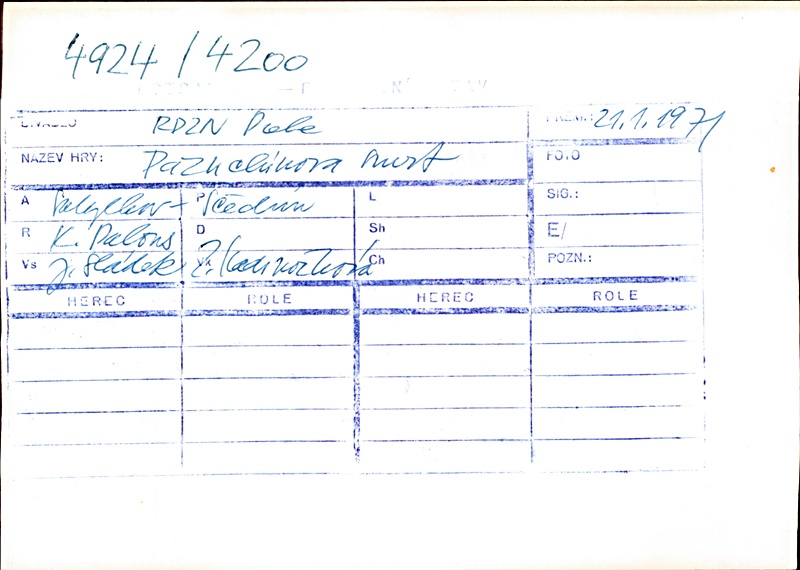 4924/4200
DIVADLO RDZN Praha PREM.: 21.1.1971
NÁZEV HRY: Pazuchinova smrt FOTO
A Saltykov-Ščedrin P L SIG.:
R K. Palouš D Sh E/
Vs J. Sládek Vk Z. Kadrnožková Ch POZN.:
HEREC ROLE HEREC ROLE